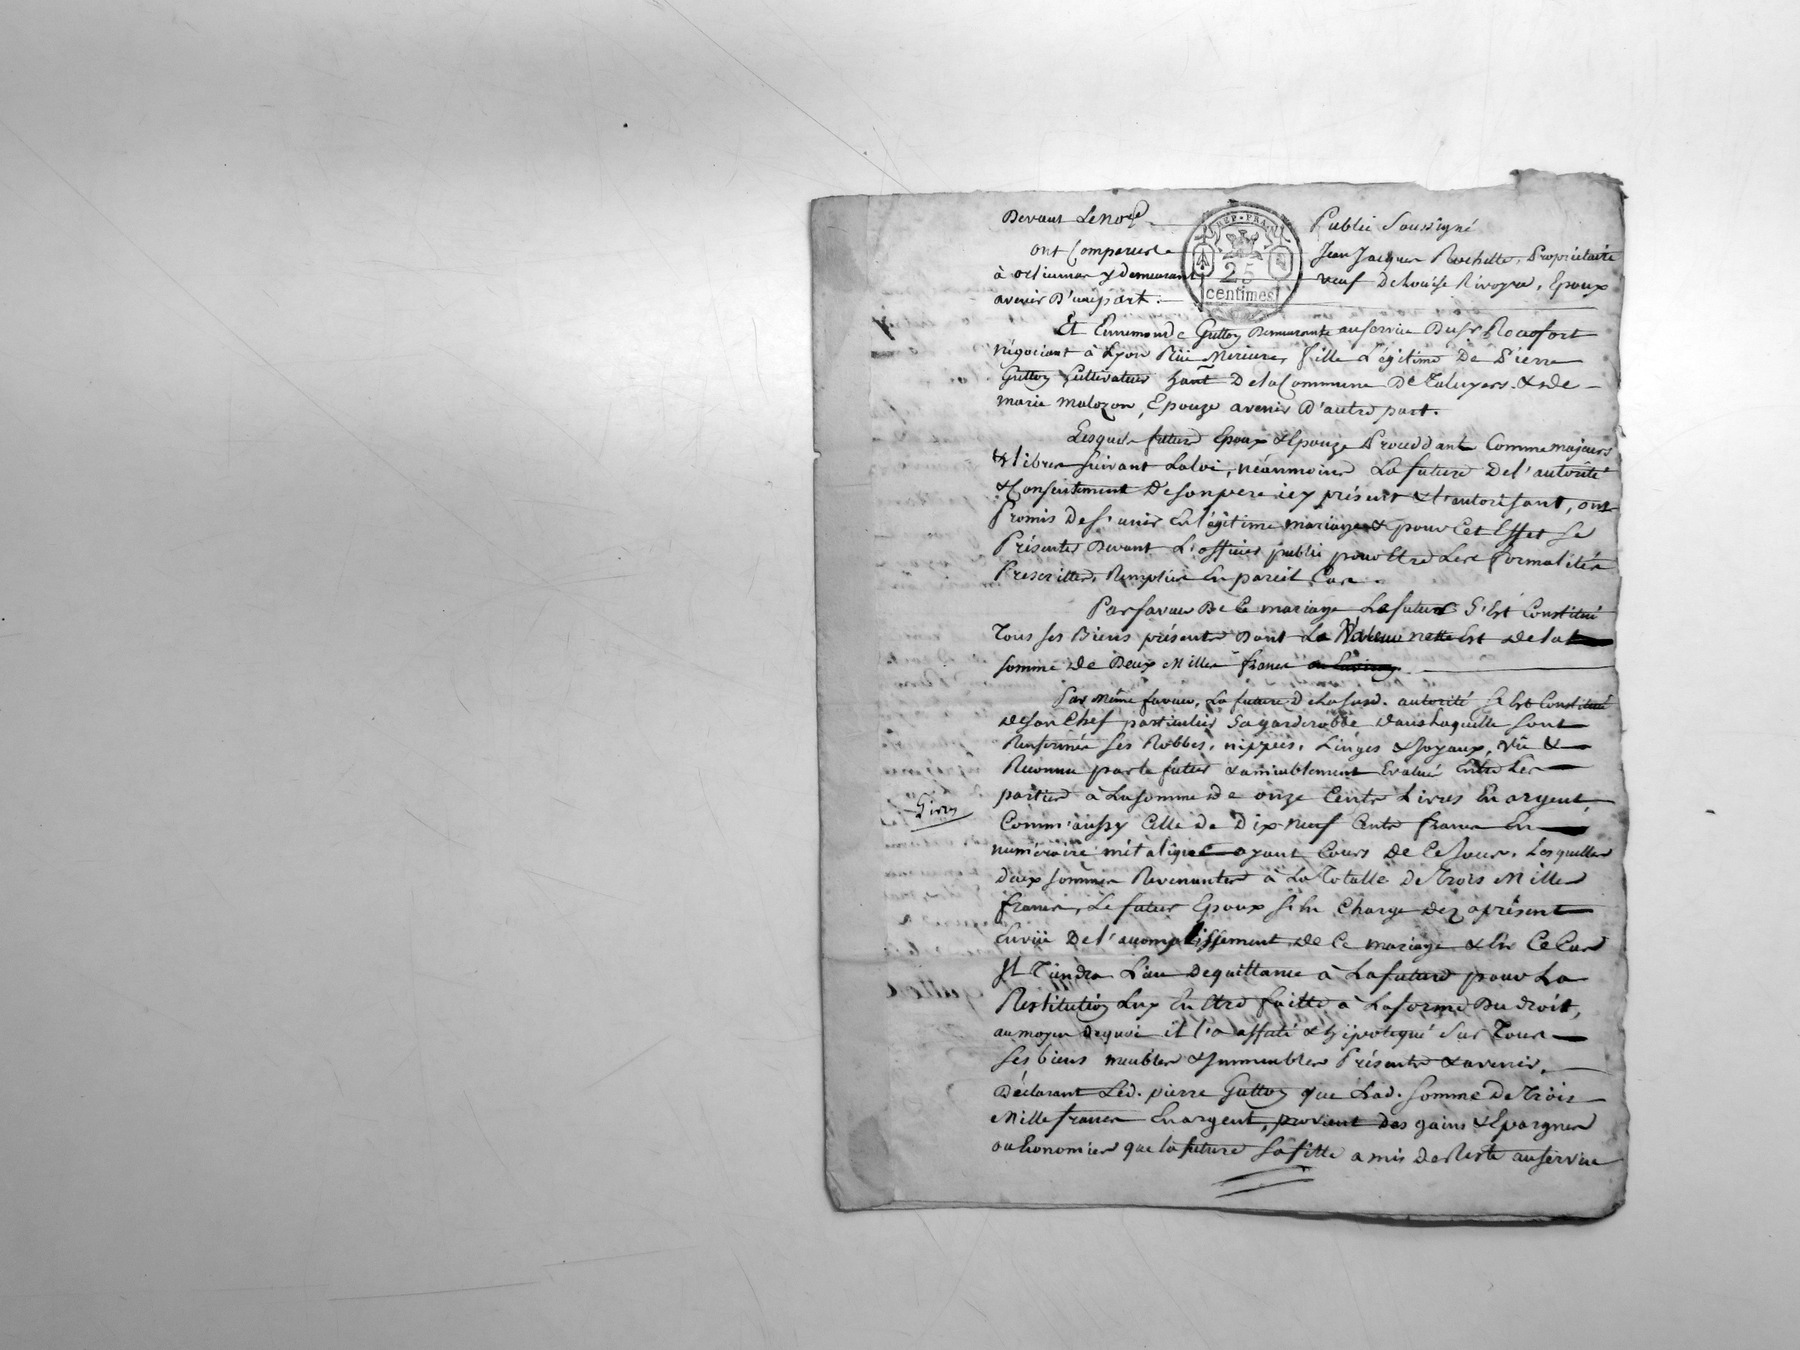 Devant Le No.re Public Soussigné
ont Comparus Jean Jacques Rochette, Propriétaire
à orliennas y demeurant veuf De Louise Rivoyre, Epoux
avenir D'une part.
REP. FRA.
25
centimes
Et Ennemonde Gutton Demeurante au service Du S.r Rocofort
négociant à Lyon Rüe Merciere, fille Légitime De Pierre
Gutton Cultivateur hant De la Commune De Taluyers & de
marie malozon, Epouze avenir D'autre part.
Lesquels futurs Epoux & Epouze Procédant Comme majeurs
& libres suivant La loi, néanmoins La future De l'autorité
& Consentement De son pere icy présent & l'autorisant, ont
Promis De s'unir En légitime mariage & pour Cet Effet se
Présenter Devant L'officier public pour Etre Les formalités
Prescrittes, Remplies En pareil Cas.
Par faveur De Ce mariage Le futur S'Est Constitué
Tous ses Biens présents Dont La Valeur nette Est de la
somme de Deux Mille francs
Par Même faveur, La future De La susd. autorité S'Est Constitué
de son Chef particulier Sa garderobbe dans Laquelle sont
Renfermés ses Robbes, nippes, Linges & Joyaux, vüe &
Reconnu par le futur & amiablement Evalué Entre Les
parties à La somme de onze Cents Livres En argent
Comm'aussy Celle de Dix neuf Cents francs En
numéraire métalique ayant Cours De Ce Jour, Lesquelles
deux sommes Revenantes à La Totalle de Trois Mille
francs, Le futur Epoux s'En Charge dez aprésent
Envüe De l'accomplissement de Ce mariage & En Ce Cas
Il Tiendra Lieu De quittance à La future pour La
Restitution Luy En Etre faitte à La forme Du droit,
au moyen De quoi il l'a affecté & hÿpotequé Sur Tous
ses biens meubles & Immeubles Présents & avenir,
Déclarant Led. pierre Gutton que Lad. somme De Trois
Mille francs En argent, provient Des gains & Epargnes
ou Economies que la future Sa fille a mis De Reste au service